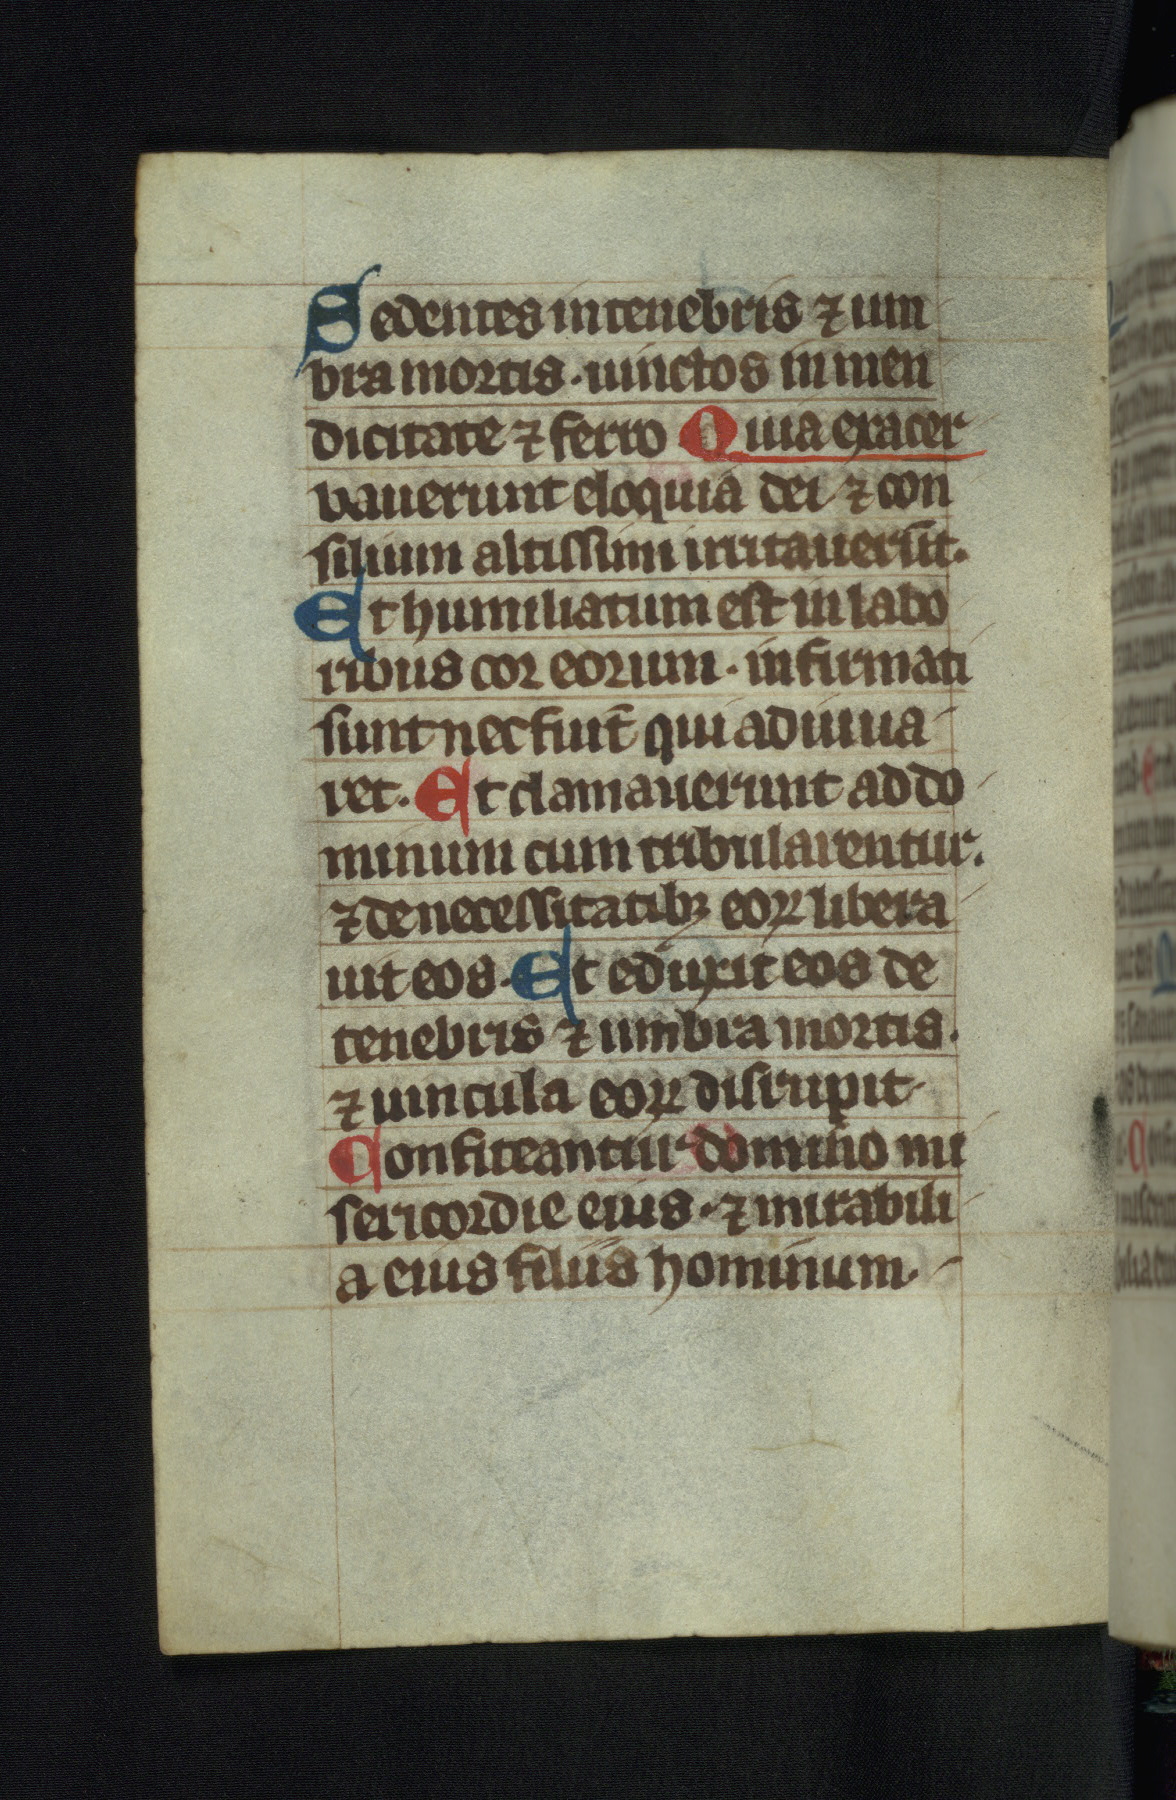 Sedentes in tenebris ⁊ um
bra mortis · uinctos in men
dicitate ⁊ ferro Quia exacer
bauerunt eloquia dei ⁊ con
silium altissimi irritauerūt.
Et humiliatum est in labo
ribus cor eorum · infirmati
sunt nec fuit̄ qui adiuua
ret. Et clamauerunt ad do
minum cum tribularentur.
⁊ de necessitatibꝫ eoꝝ libera
uit eos. Et eduxit eos de
tenebris ⁊ umbra mortis.
⁊ uincula eoꝝ disrupit.
Confiteantur domino mi
sericordie eius · ⁊ mirabili
a eius filiis hominum.